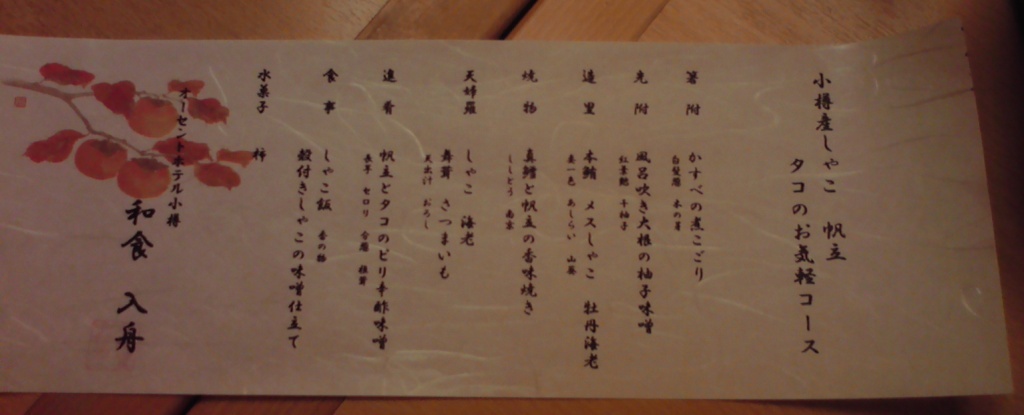 小樽産しゃこ 帆立
タコのお気軽コース
箸附 かすべの煮こごり
白髪葱 木の芽
先附 風呂吹き大根の柚子味噌
紅葉麩 千柚子
造里 本鮪 メスしゃこ 牡丹海老
妻一色 あしらい 山葵
焼物 真鱈と帆立の香味焼き
ししとう
天婦羅 しゃこ 海老
舞茸 さつまいも
天出汁 おろし
進肴 帆立とタコのピリ辛酢味噌
セロリ
食事 しゃこ飯 香の物
殻付きしゃこの味噌仕立て
水菓子 柿
オーセントホテル小樽
和食 入舟